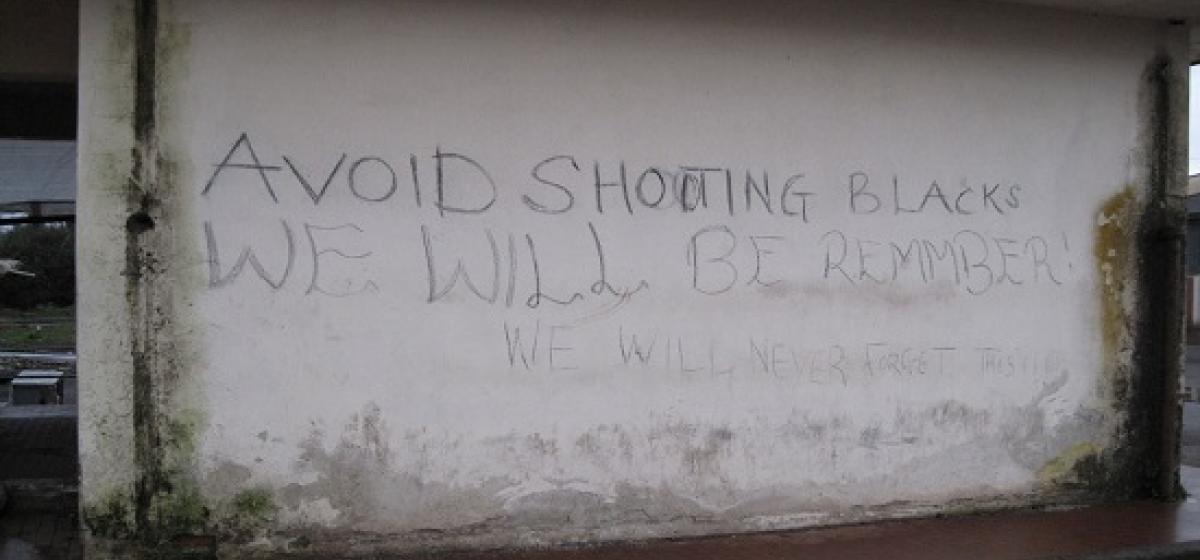 AVOID SHOOTING BLACKS
WE WILL BE REMMBER!
WE WILL NEVER FORGET THIS